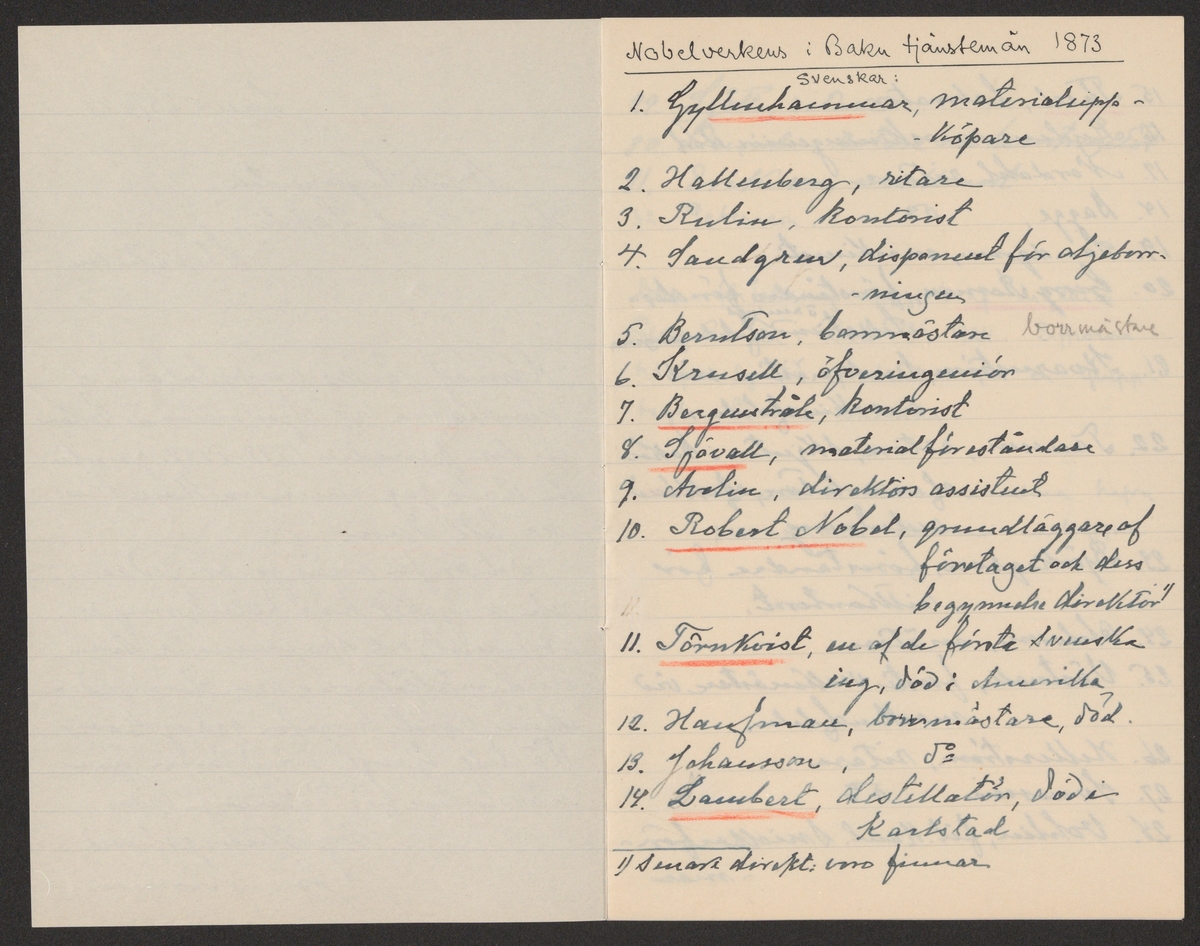 Nobelverkens i Baku tjänstemän 1873
Svenskar:
1. Gyllenhammar, materialupp-
-köpare
2. Hallenberg, ritare
3. Rulin, kontorist
4. Sandgren, disponent för oljeborr-
-ningen
5. Berntson, borrmästare borrmästare
6. Krusell, öfveringeniör
7. Bergenstråle, kontorist
8. Sjövall, materialföreståndare
9. Avelin, direktörs assistent
10. Robert Nobel, grundläggare af
företaget och dess
begynnelse direktör 1)
11. Törnkvist, en af de första svenska
ing, död i Amerika
12. Haufman, borrmästare, död.
13. Johansson, do
14. Lambert, destillatör, död i
Karlstad
1) Senare direkt: voro finnar